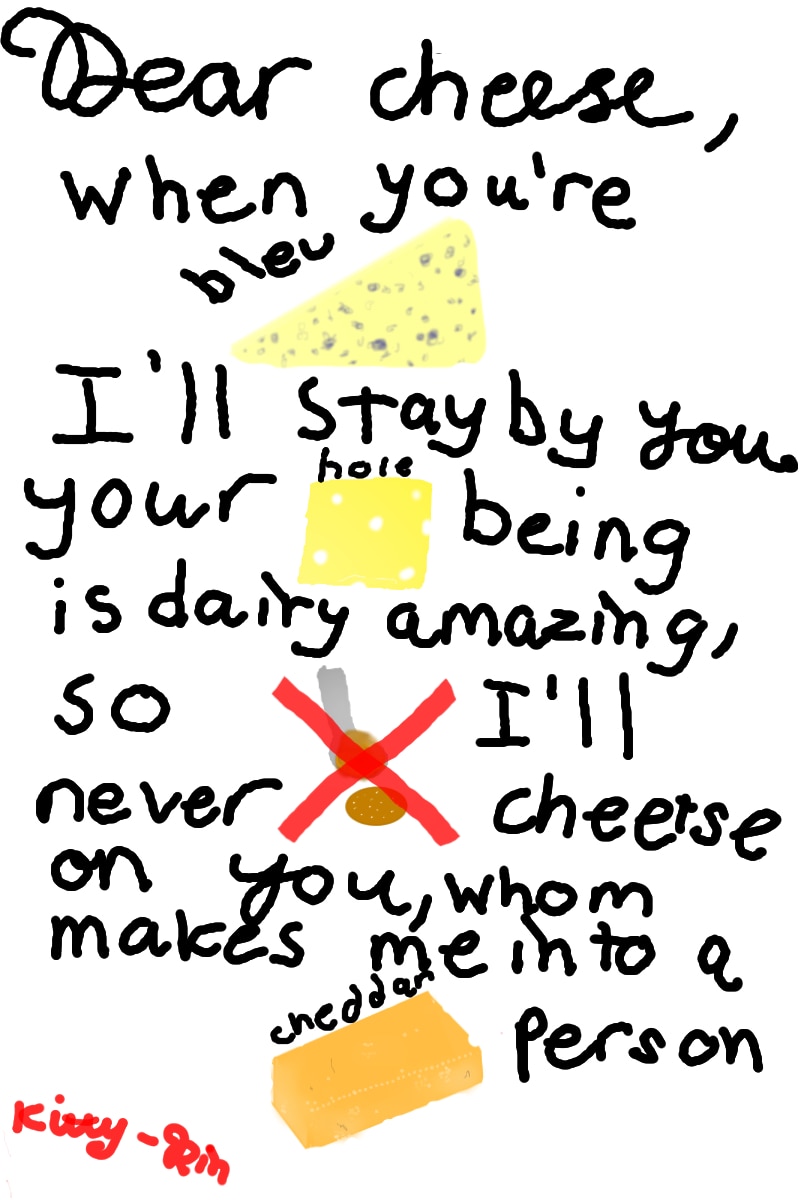 Dear cheese,
when you're
bleu
I'll stay by you.
hole
your being
is dairy amazing,
so I'll
never cheese
on you, whom
makes me into a
cheddar
person
Kitty-Rin